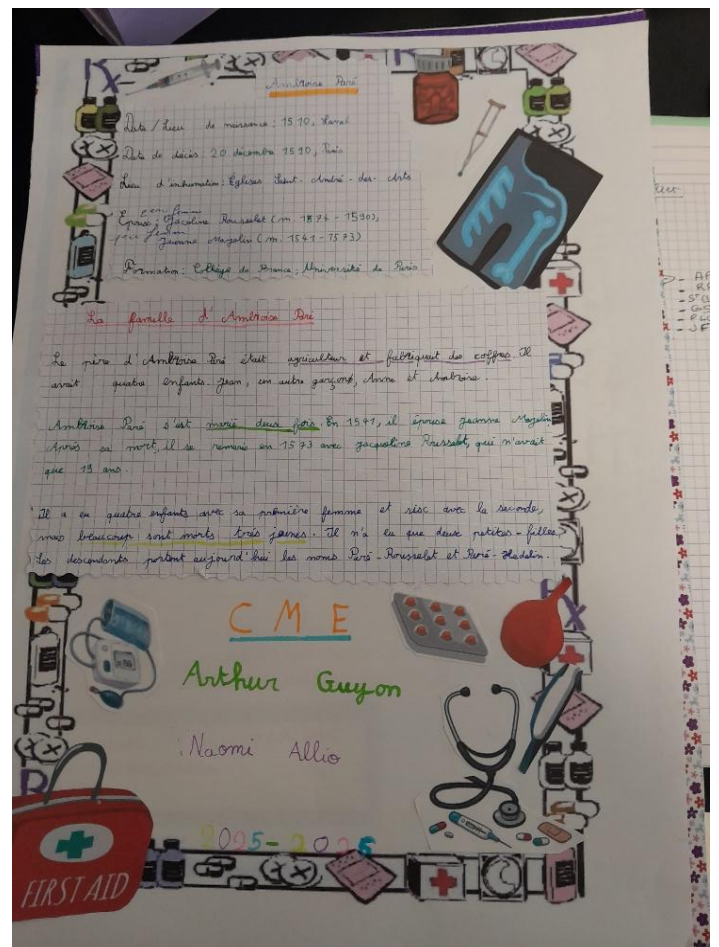 Ambroise Paré
Date / Lieu de naissance : 1510, Laval
Date de décès : 20 décembre 1590, Paris
Lieu d'inhumation : Eglises Saint-André-des-Arts
2èm femme
Epouse : Jacqueline Rousselet (m. 1574 - 1590),
Jeanne Mazelin (m. 1541 - 1573)
Formation : Collège de France, Université de Paris
La famille d'Ambroise Paré
Le père d'Ambroise Paré était agriculteur et fabriquait des coffres. Il
avait quatre enfants. Jean, un autre garçon, Anne et Ambroise.
Ambroise Paré s'est marié deux fois. En 1541, il épouse Jeanne Mazelin
Après sa mort, il se remarie en 1573 avec Jacqueline Rousselet, qui n'avait
que 19 ans.
Il a eu quatre enfants avec sa première femme et sisc avec la seconde,
mais beaucoup sont morts très jeunes. Il n'a eu que deux petites-filles,
Les descendants portent aujourd'hui les noms Paré-Rousselet et Paré-Hedelin.
CME
Arthur Guyon
Naomi Allio
2025-2025
FIRST AID